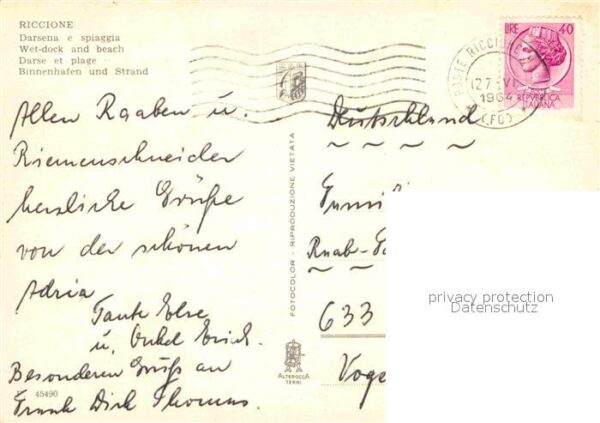 RICCIONE
Darsena e spiaggia
Wet-dock and beach
Darse et plage
Binnenhafen und Strand
LIRE 40
POSTE RICCIONE
27-VI
1964
(FO)
REPVBBLICA
ITALIANA
Allen Raaben u.
Riemenschneider
herzliche Grüße
von der schönen
Adria
Tante Else
u. Onkel Erich.
Besonderen Gruß an
Frank Dirk Thomas.
45490
FOTOCOLOR - RIPRODUZIONE VIETATA
ALTEROCCA
TERNI
Deutschland
Famili
Raab-
633
privacy protection
Datenschutz